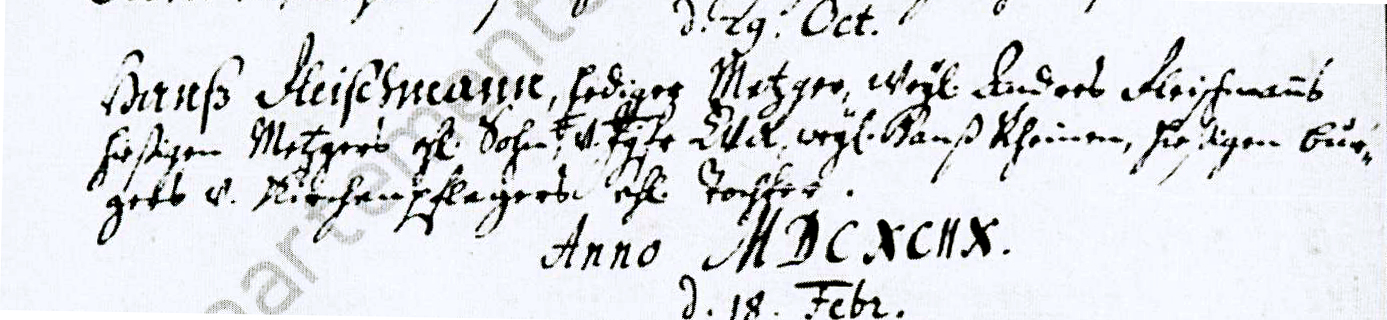 d. 29. Oct.
Hanß Fleischmann, lediger Metzger, weyl. Andres Fleischmans
hiesigen Metzgers ehl. Sohn, v. Jgfr. Eva, weyl. Hanß Rheinen, hiesigen bur-
gers v. Kirchenpflegers ehl. Tochter.
Anno MDCXCIIX.
d. 18. Febr.